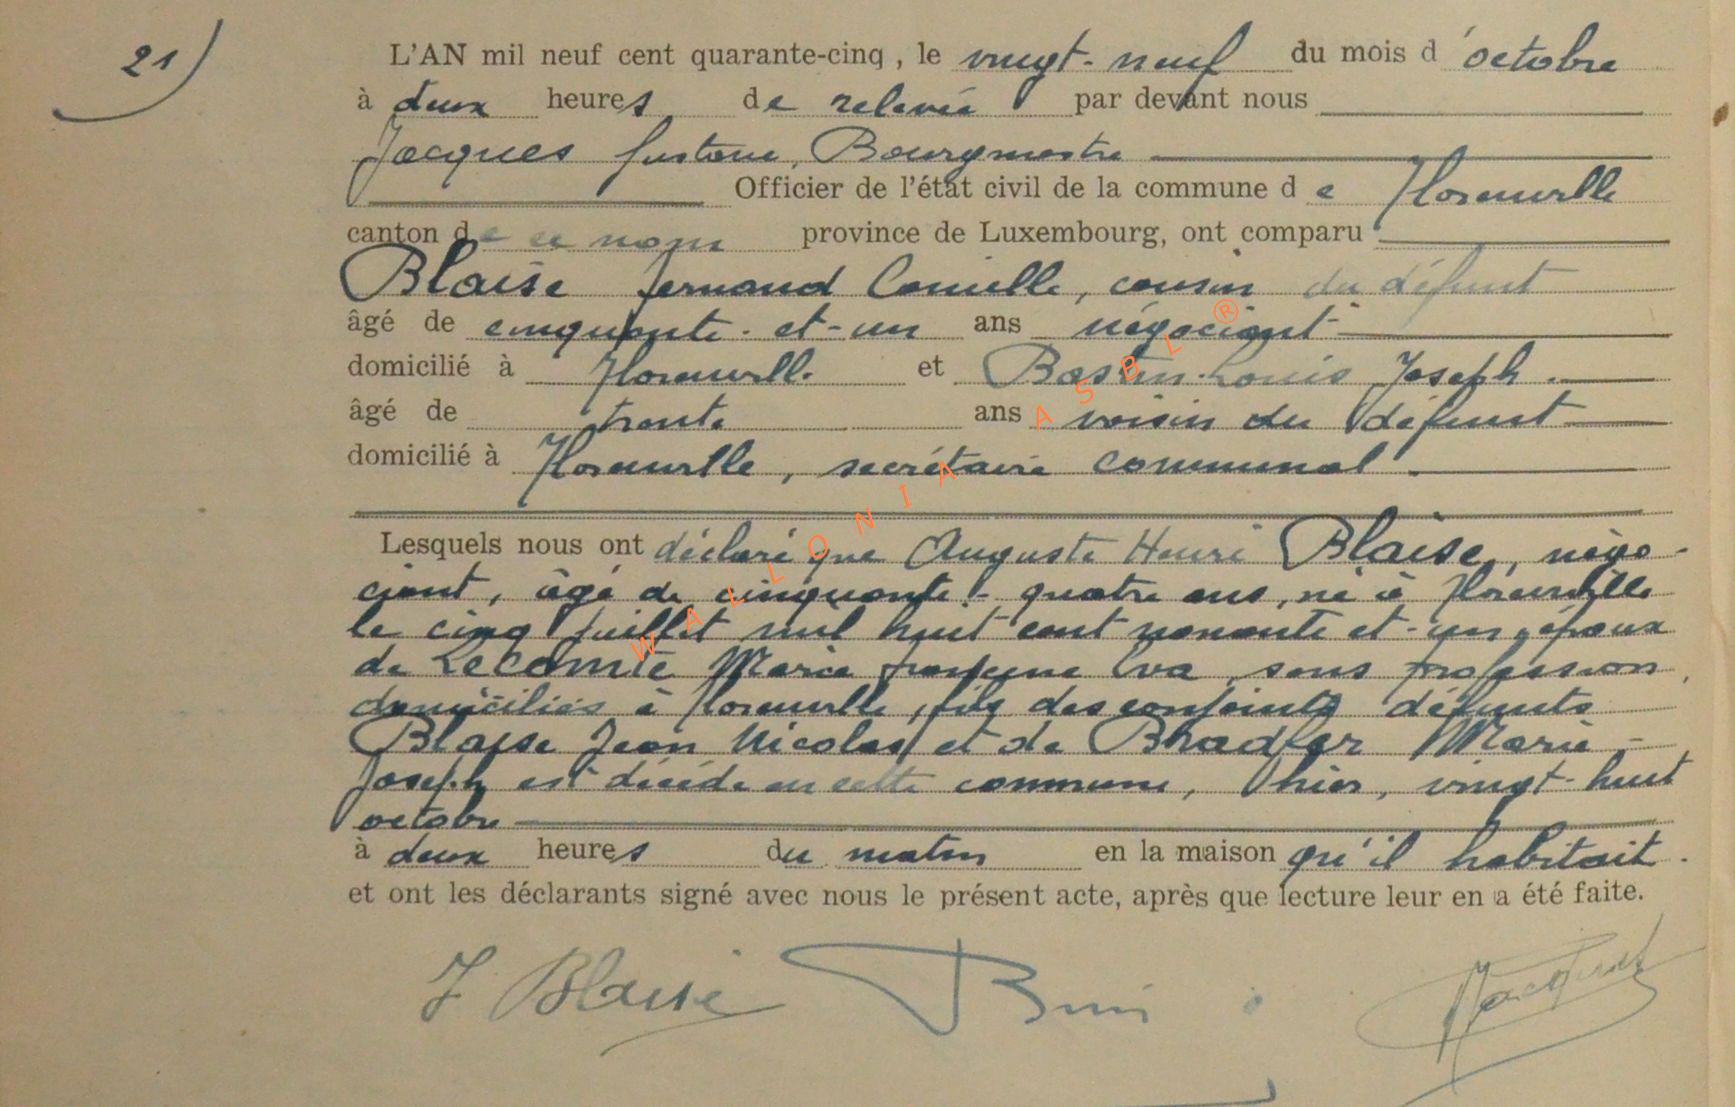 21)
L'AN mil neuf cent quarante-cinq, le vingt-neuf du mois d'octobre
à deux heures de relevée par devant nous
Jacques Gustave, Bourgmestre
Officier de l'état civil de la commune de Florenville
canton de ce nom province de Luxembourg, ont comparu
Blaise Fernand Camille, cousin du défunt
âgé de cinquante-et-un ans négociant
domicilié à Florenville et Bastin Louis Joseph
âgé de trente ans voisin du défunt
domicilié à Florenville, secrétaire communal
Lesquels nous ont déclaré que Auguste Henri Blaise, négo-
ciant, âgé de cinquante-quatre ans, né à Florenville
le cinq juillet mil huit cent nonante et-un, époux
de Lecomte Marie Eva, sans profession,
domiciliés à Florenville, fils des conjoints défunts
Blaise Jean Nicolas et de Bradfer Marie-
Joseph est décédé en cette commune, hier, vingt-huit
octobre
à deux heures du matin en la maison qu'il habitait.
et ont les déclarants signé avec nous le présent acte, après que lecture leur en a été faite.
F. Blaise
WALLONIA ASBL ®